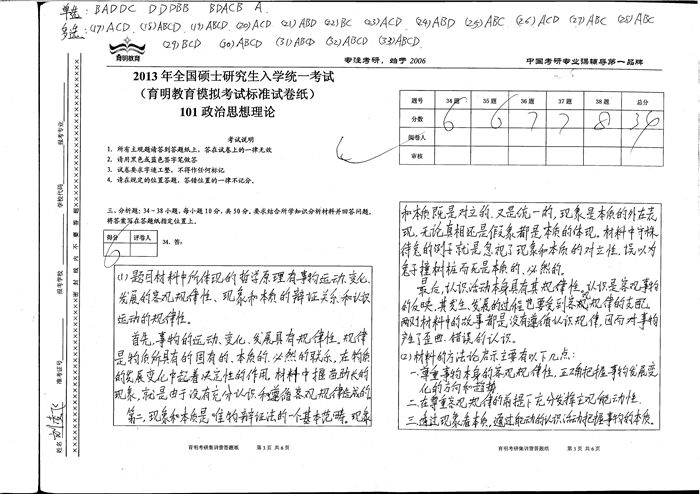 单选: BADDC DDDBB BDACB A
多选: (17)ACD. (18)ABCD (19)ABCD (20)ACD (21)ABD (22)BC (23)ACD (24)ABD (25)ABC (26)ACD (27)ABC (28)ABC
(29)BCD (30)ABCD (31)ABCD (32)ABCD (33)ACD.
育明教育
专注考研，始于 2006
中国考研专业课辅导第一品牌
2013 年全国硕士研究生入学统一考试
（育明教育模拟考试标准试卷纸）
101 政治思想理论
考试说明
1、所有主观题请答到答题纸上，答在试卷上的一律无效
2、请用黑色或蓝色签字笔做答
3、试卷要求字迹工整，不得作任何标记
4、请在规定的位置答题，答错位置的一律不记分。
三、分析题：34－38小题，每小题 10 分，共 50 分。要求结合所学知识分析材料并回答问题。
将答案写在答题纸指定位置上。
得分 评卷人 34、答：
6
(1) 题目材料中所体现的哲学原理有事物运动、变化、
发展的客观规律性、现象和本质的辩证关系和认识
运动的规律性。
首先，事物的运动、变化、发展具有规律性。规律
是物质所具有的固有的、本质的、必然的联系，在物质
的发展变化中起着决定性的作用。材料中揠苗助长的
现象，就是由于没有充分认识和遵循客观规律造成的。
第二，现象和本质是唯物辩证法的一个基本范畴。现象
育明考研集训营答题纸 第 3 页 共 6 页
题号 34 题 35 题 36 题 37 题 38 题 总分
分数 6 6 7 7 8 34
阅卷人
审核
和本质既是对立的，又是统一的，现象是本质的外在表
现，无论真相还是假象都是本质的体现。材料中守株
待兔的例子就是忽视了现象和本质的对立性，误以为
兔子撞树桩而死是本质的、必然的。
最后，认识活动本身具有其规律性。认识是客观事物
的反映，其发生、发展的过程也要受到客观规律的支配。
两则材料中的故事都是没有遵循认识规律，因而对事物
产生了歪曲、错误的认识。
(2) 材料的方法论启示主要有以下几点：
一、尊重事物本身的客观规律性，正确把握事物发展变
化的方向和趋势
二、在尊重客观规律的前提下充分发挥主观能动性。
三、透过现象看本质，通过能动的认识活动把握事物的本质。
育明考研集训营答题纸 第 3 页 共 6 页
报考专业
学校代码
报考学校
准考证号
姓名
密封线内不要答题